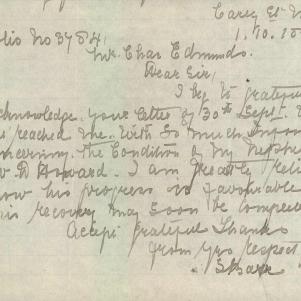 Carey St
1.10.15
lio No 37841
Mr. Chas Edmunds.
Dear Sir,
I beg to gratefu
cknowledge your letter of 30th Sept.
s reached me. With so much
ncerning the Condition of my Nephew
I am greatly reli
now his progress is favourable
his recovery may soon be complete
Accept grateful Thanks
from yrs respect